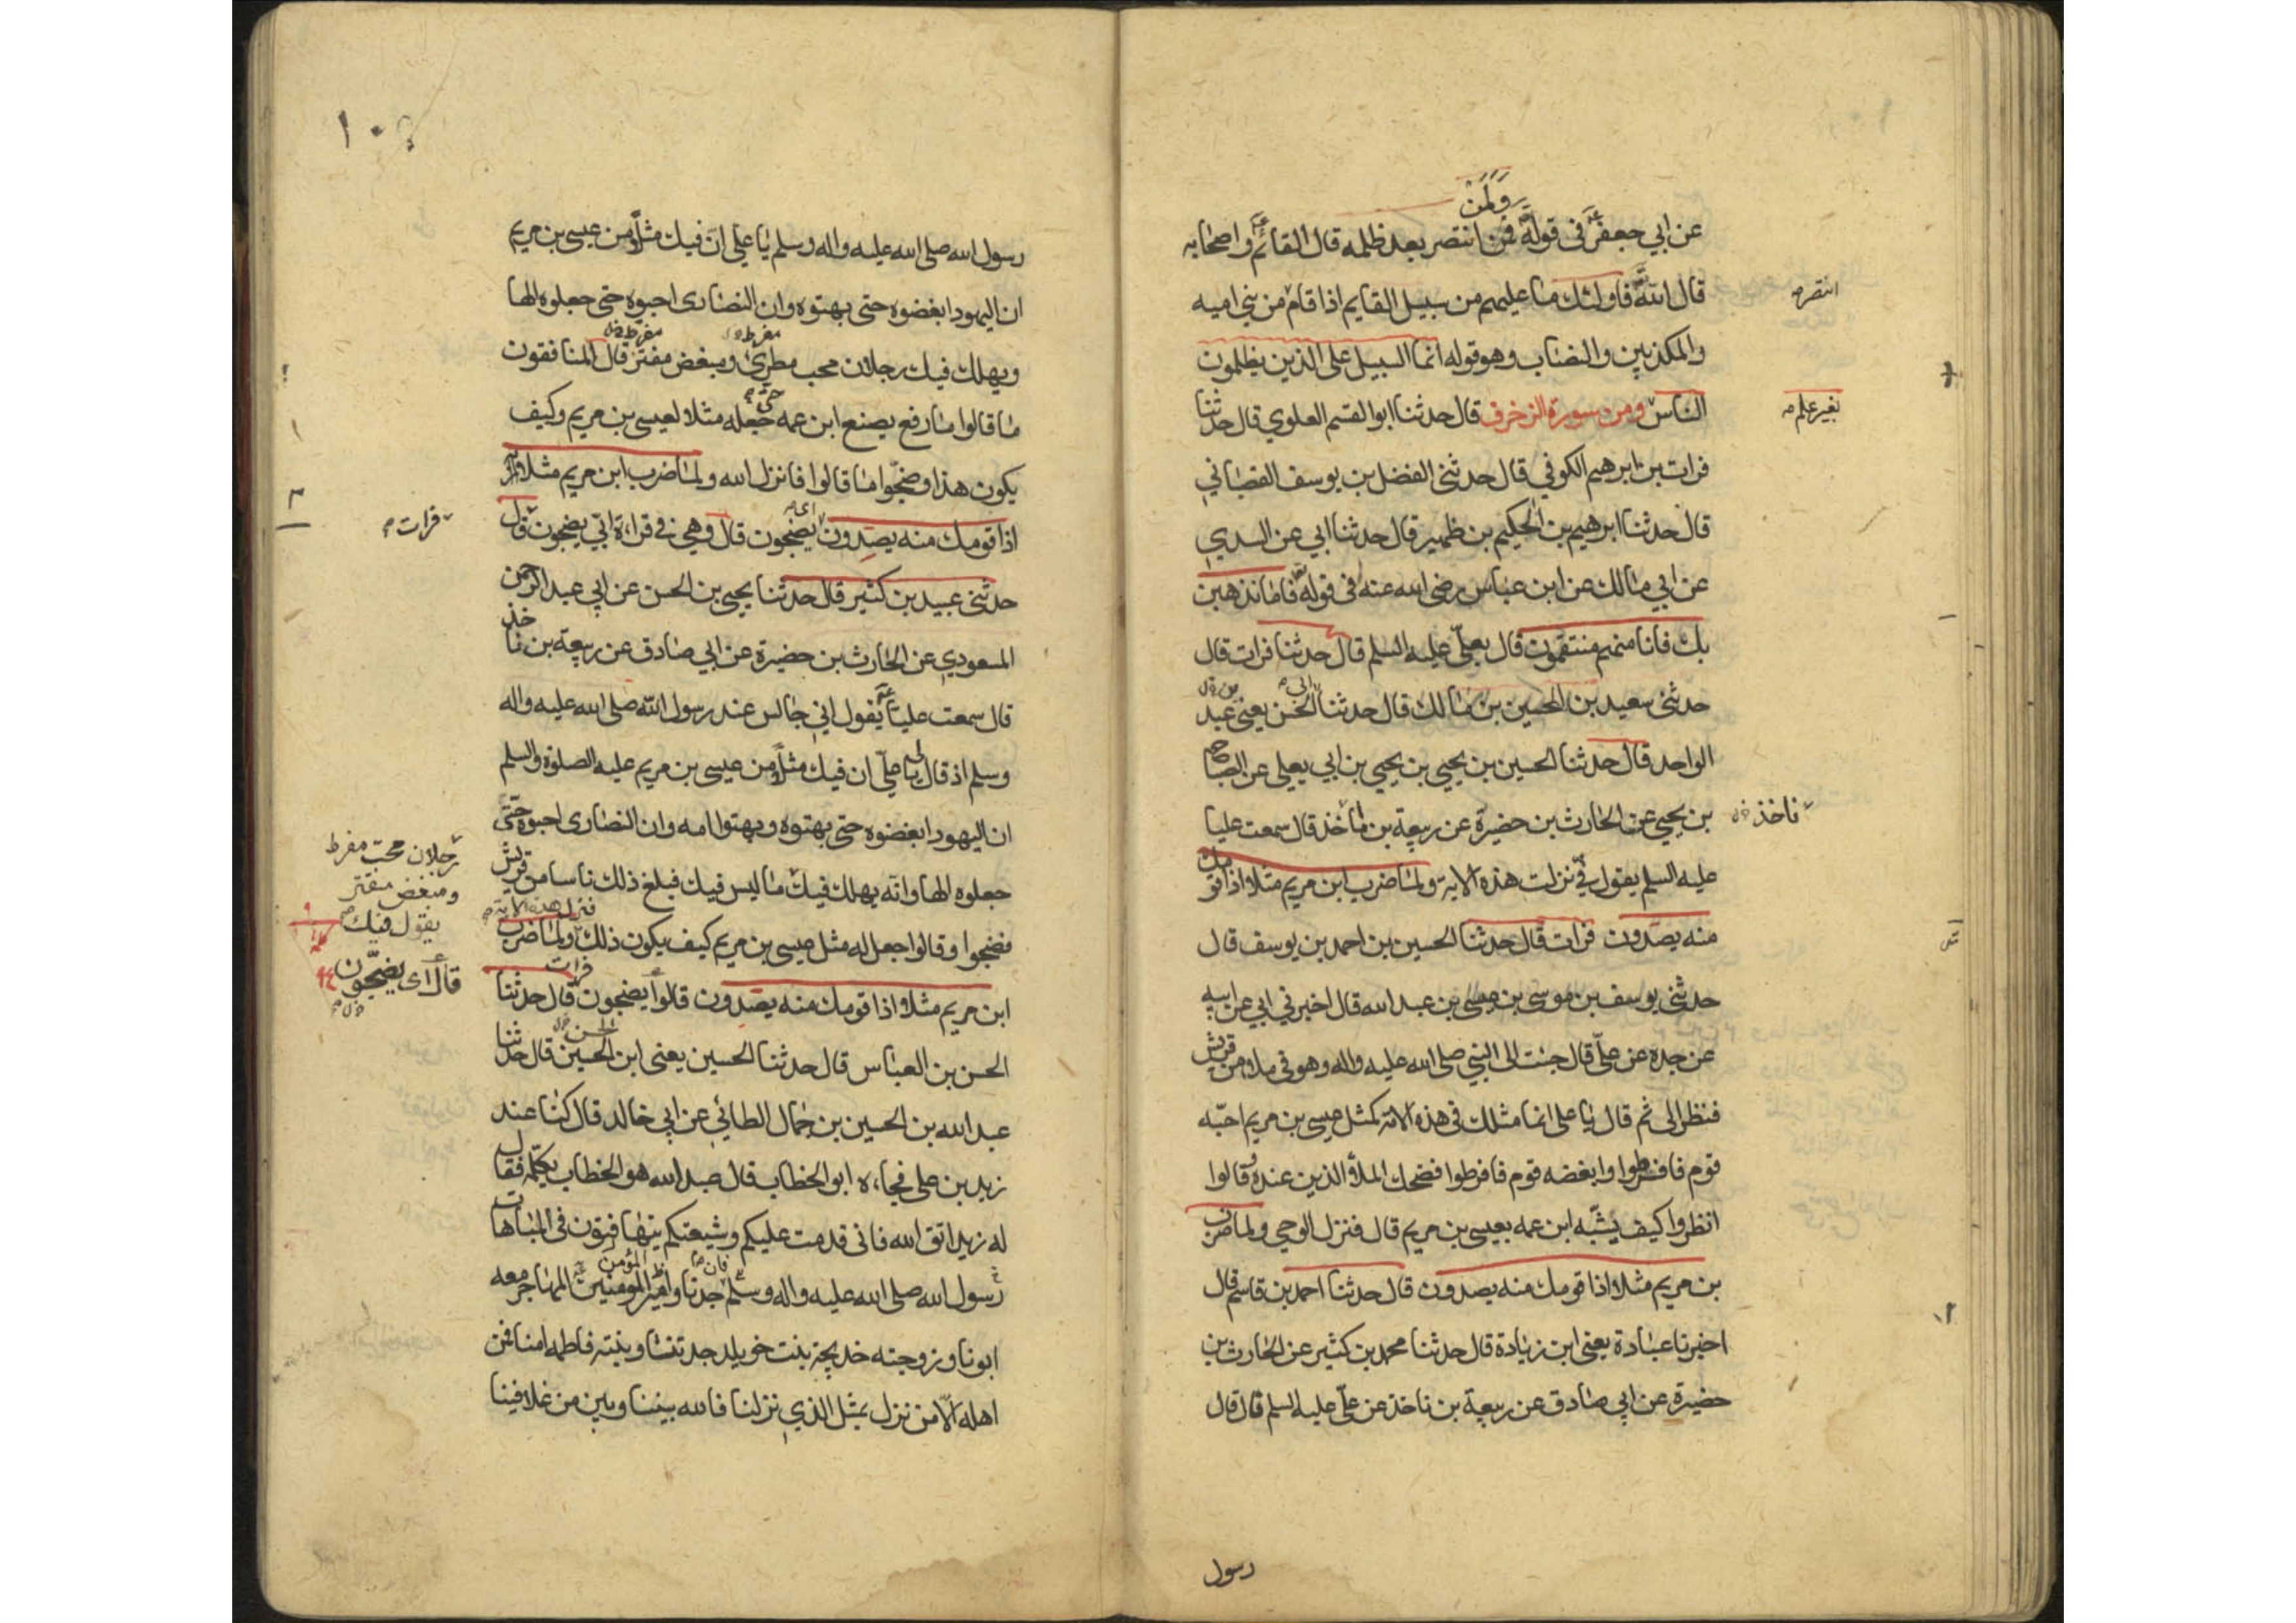 ولمن
عن ابي جعفر ع في قوله فمن انتصر بعد ظلمه قال القائم ع واصحابه
قال الله تع فاولئك ما عليهم من سبيل القايم اذا قام من بني اميه
انتصر م
والمكذبين والنصاب وهو قوله انما السبيل على الذين يظلمون
الناس ومن سورة الزخرف قال حدثنا ابو القسم العلوي قال حدثنا
بغير علم م
فرات بن ابرهيم الكوفي قال حدثني الفضل بن يوسف القصباني
قال حدثنا ابرهيم بن الحكيم بن ظهير قال حدثنا ابي عن السدي
عن ابي مالك عن ابن عباس رضي الله عنه في قوله تع فاما نذهبن
بك فانا منهم منتقمون قال بعلي عليه السلم قال حدثنا فرات قال
حدثني سعيد بن الحسين بن مالك قال حدثنا الحسن يعني عبد
الواحد قال حدثنا الحسين بن يحيي بن يحيي بن ابي يعلي عن الصباح
بن يحيي عن الحارث بن حضيرة عن ربيعة بن ماخذ قال سمعت عليا
ناخذ خ ل
عليه السلم يقول فيّ نزلت هذه الاية ولما ضرب ابن مريم مثلا اذا قومك
منه يصدون فرات قال حدثنا الحسين بن احمد بن يوسف قال
حدثني يوسف بن موسى بن عيسى بن عبد الله قال اخبرني ابي عن ابيه
عن جده عن عليّ قال جئت الى النبي صلى الله عليه واله وهو في ملاء من قريش
فنظر الى ثم قال يا على انما مثلك في هذه الامة كمثل عيسى بن مريم احبّه
قوم فافرطوا وابغضه قوم فافرطوا فضحك الملأ الذين عنده وقالوا
انظروا كيف يشبّه ابن عمه بعيسى بن مريم قال فنزل الوحي ولما ضرب
بن مريم مثلا اذا قومك منه يصدون قال حدثنا احمد بن قاسم قال
اخبرنا عبادة يعني ابن زيادة قال حدثنا محمد بن كثير عن الحارث بن
حضيرة عن ابي صادق عن ربيعة بن ناخذ عن عليّ عليه السلم قال قال
رسول
رسول الله صلى الله عليه واله وسلم يا علي انّ فيك مثلاً من عيسى بن مريم
ان اليهود ابغضوه حتى بهتوه وان النصارى احبوه حتى جعلوه الها
ويهلك فيك رجلان محب مطري ومبغض مفتر قال المنافقون
ما قالوا ما رفع يصنع ابن عمه جعله مثلا لعيسى بن مريم وكيف
يكون هذا وضجّوا ما قالوا فانزل الله ولما ضرب ابن مريم مثلا
اذا قومك منه يصدون اى يضجون قال وهي في قراءة ابيّ يضجون قال
فرات م
حدثني عبيد بن كثير قال حدثنا يحيى بن الحسن عن ابي عبد الرحمن
المسعودي عن الحارث بن حضيرة عن ابي صادق عن ربيعة بن ناخذ
قال سمعت عليا ع يقول اني جالس عند رسول الله صلى الله عليه واله
وسلم اذ قال يا عليّ ان فيك مثلاً من عيسى بن مريم عليه الصلوة والسلم
ان اليهود ابغضوه حتى بهتوه وبهتوا امه وان النصارى احبوه حتّى
جعلوه الها وانه يهلك فيك ما ليس فيك فبلغ ذلك ناسا من قريش
رجلان محب مفرط
ومبغض مفتر
يقول فيك
فنزل هذه الاية م
فضجوا وقالوا جعل له مثل عيسى بن مريم كيف يكون ذلك ولما ضرب
ابن مريم مثلا اذا قومك منه يصدون قالوا يضجون فرات قال حدثنا
قال اى يضجّون
الحسن بن العباس قال حدثنا الحسين يعنى ابن الحسين قال حدثنا
عبد الله بن الحسين بن جمال الطائي عن ابي خالد قال كنا عند
زيد بن على فجاءه ابو الخطاب قال عبد الله هو الخطاب يكلمه فقال
له زيد اتق الله فانى قدمت عليكم وشيعتكم يتهافتون في المباهات
رسول الله صلى الله عليه واله وسلم جدنا وامير المومنين المهاجر معه
ابونا وزوجته خديجة بنت خويلد جدتنا وبنته فاطمه امنا فمن
اهله الّا من نزل بمثل الذي نزلنا فالله بيننا وبين من غلا فينا